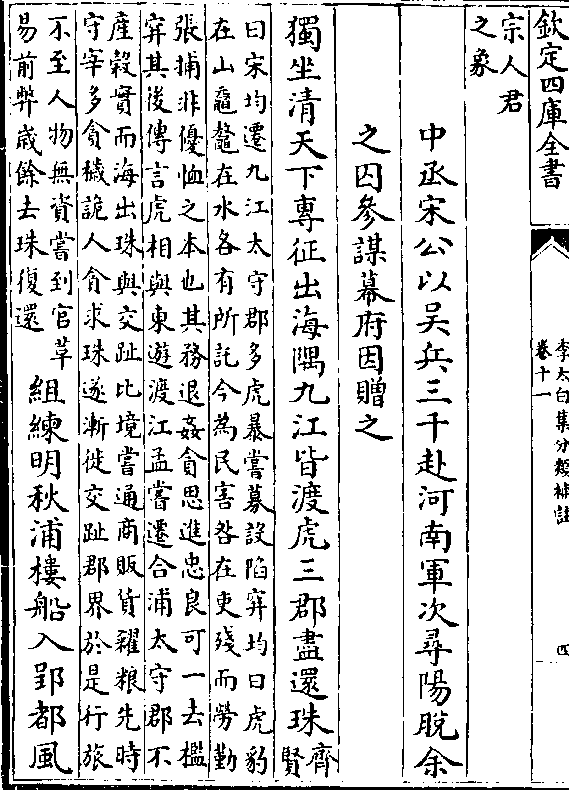 欽定四庫全書
李太白集分類補註
卷十一
四
宗人君
之象
中丞宋公以吳兵三千赴河南軍次尋陽脫余
之囚參謀幕府因贈之
獨坐清天下專征出海隅九江皆渡虎三郡盡還珠齊
賢
曰宋均遷九江太守郡多虎暴嘗募設陷穽均曰虎豹
在山黿鼉在水各有所託今為民害咎在吏殘而勞勤
張捕非優恤之本也其務退姦貪思進忠良可一去檻
穽其後傳言虎相與東遊渡江孟嘗遷合浦太守郡不
產穀實而海出珠與交趾比境嘗通商販貨糴粮先時
守宰多貪穢詭人貪求珠遂漸徙交趾郡界於是行旅
不至人物無資嘗到官革
易前弊歲餘去珠復還
組練明秋浦樓船入郢都風